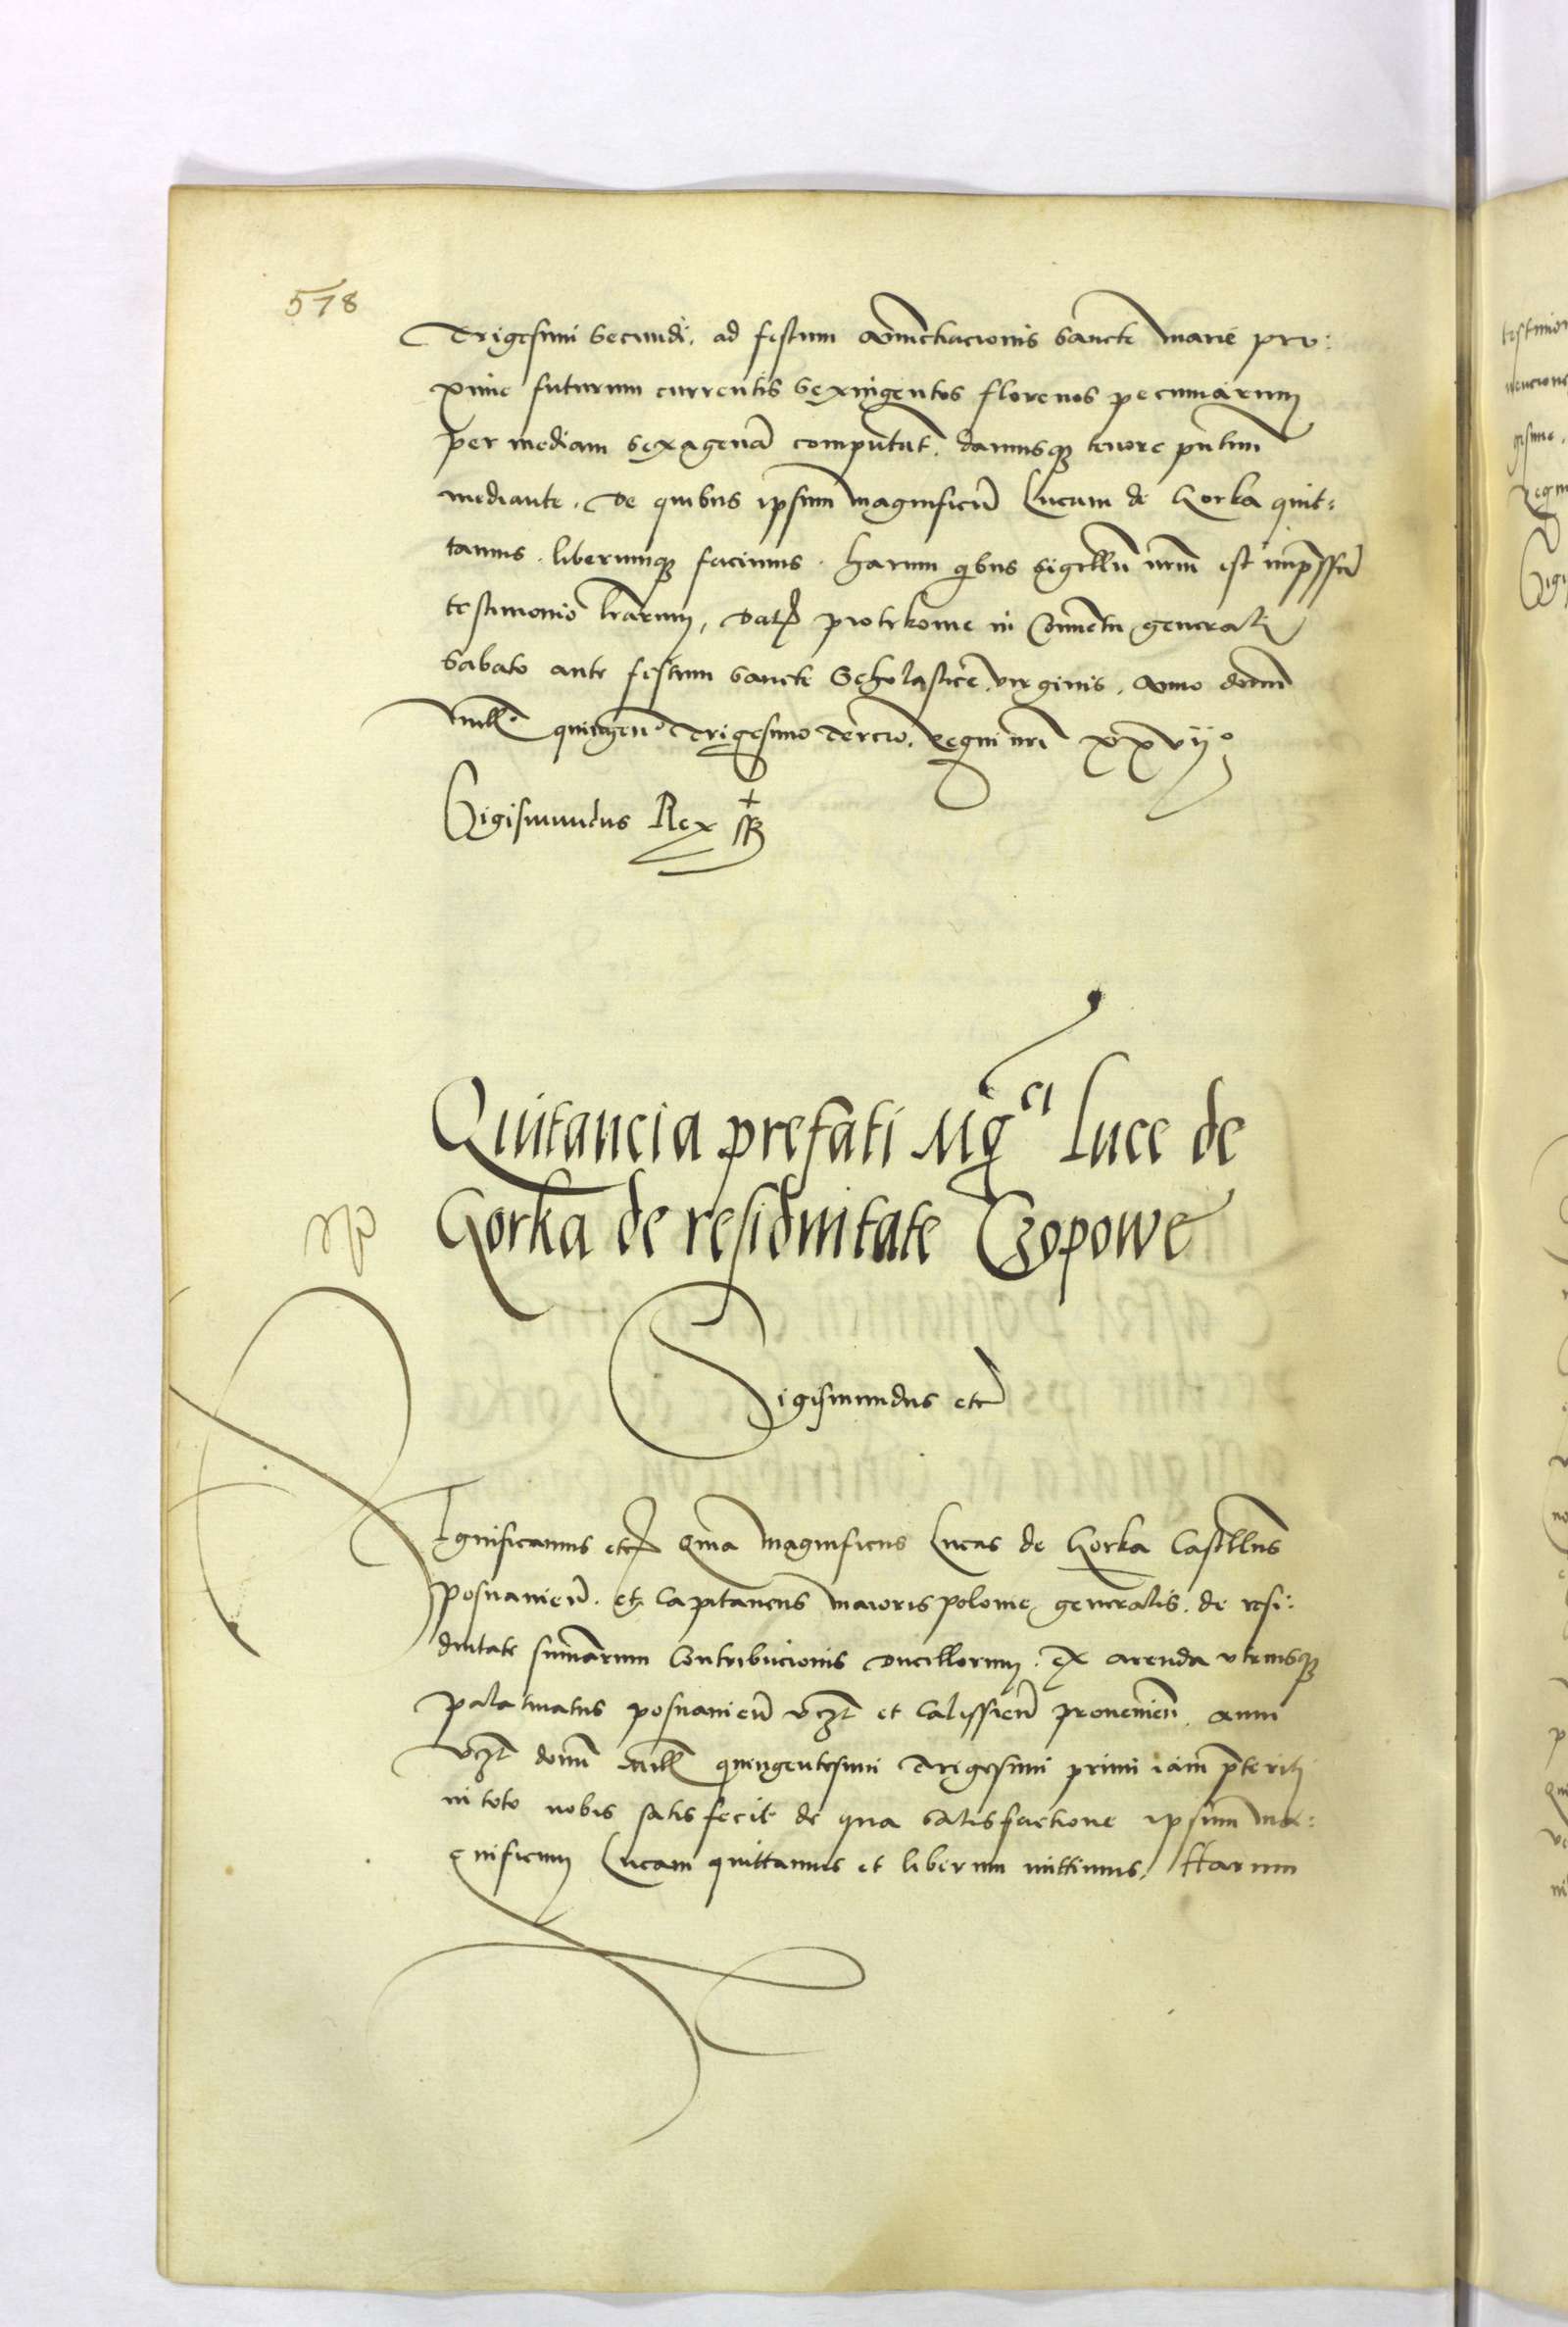 578
Trigesimi Secundi. ad festum Annuncciacionis Sancte Marie pro:
xime futurum currentis Sexingentos florenos pecuniarum
per mediam Sexagenam computat. damusq tenore pntium
mediante. De quibus ipsum Magnificu Lucam de Gorka quit:
tamus. liberumq facimus. harum qbus sigillu nrm est impssu
testimonio lrarum, Dat Piotrkowie in Conuentu generali
Sabato ante festum Sancte Scholastice virginis. Anno domi
Mille quingen° Trigesimo Tercio. Regni nri xxvij°
Sigismundus Rex sst
Quitancia prefati Mgci Luce de
Gorka de residuitate Czopowe
Sigismundus etc
Ignificamus etc Quia Magnificus Lucas de Gorka Castellnus
Posnanien. et Capitaneus Maioris Polonie generalis. de resi:
duitate sumarum Contribucionis Ducillorum. ex arenda vtriusq
Palatinatus Posnanien vczt et Calissien prouenien. anni
vczt domi Mill quingentesimi Trigesimi primi iam pteriti
in toto nobis satisfecit de qua satisfactione ipsum Ma:
gnificum Lucam quittamus et liberum mittimus, Harum